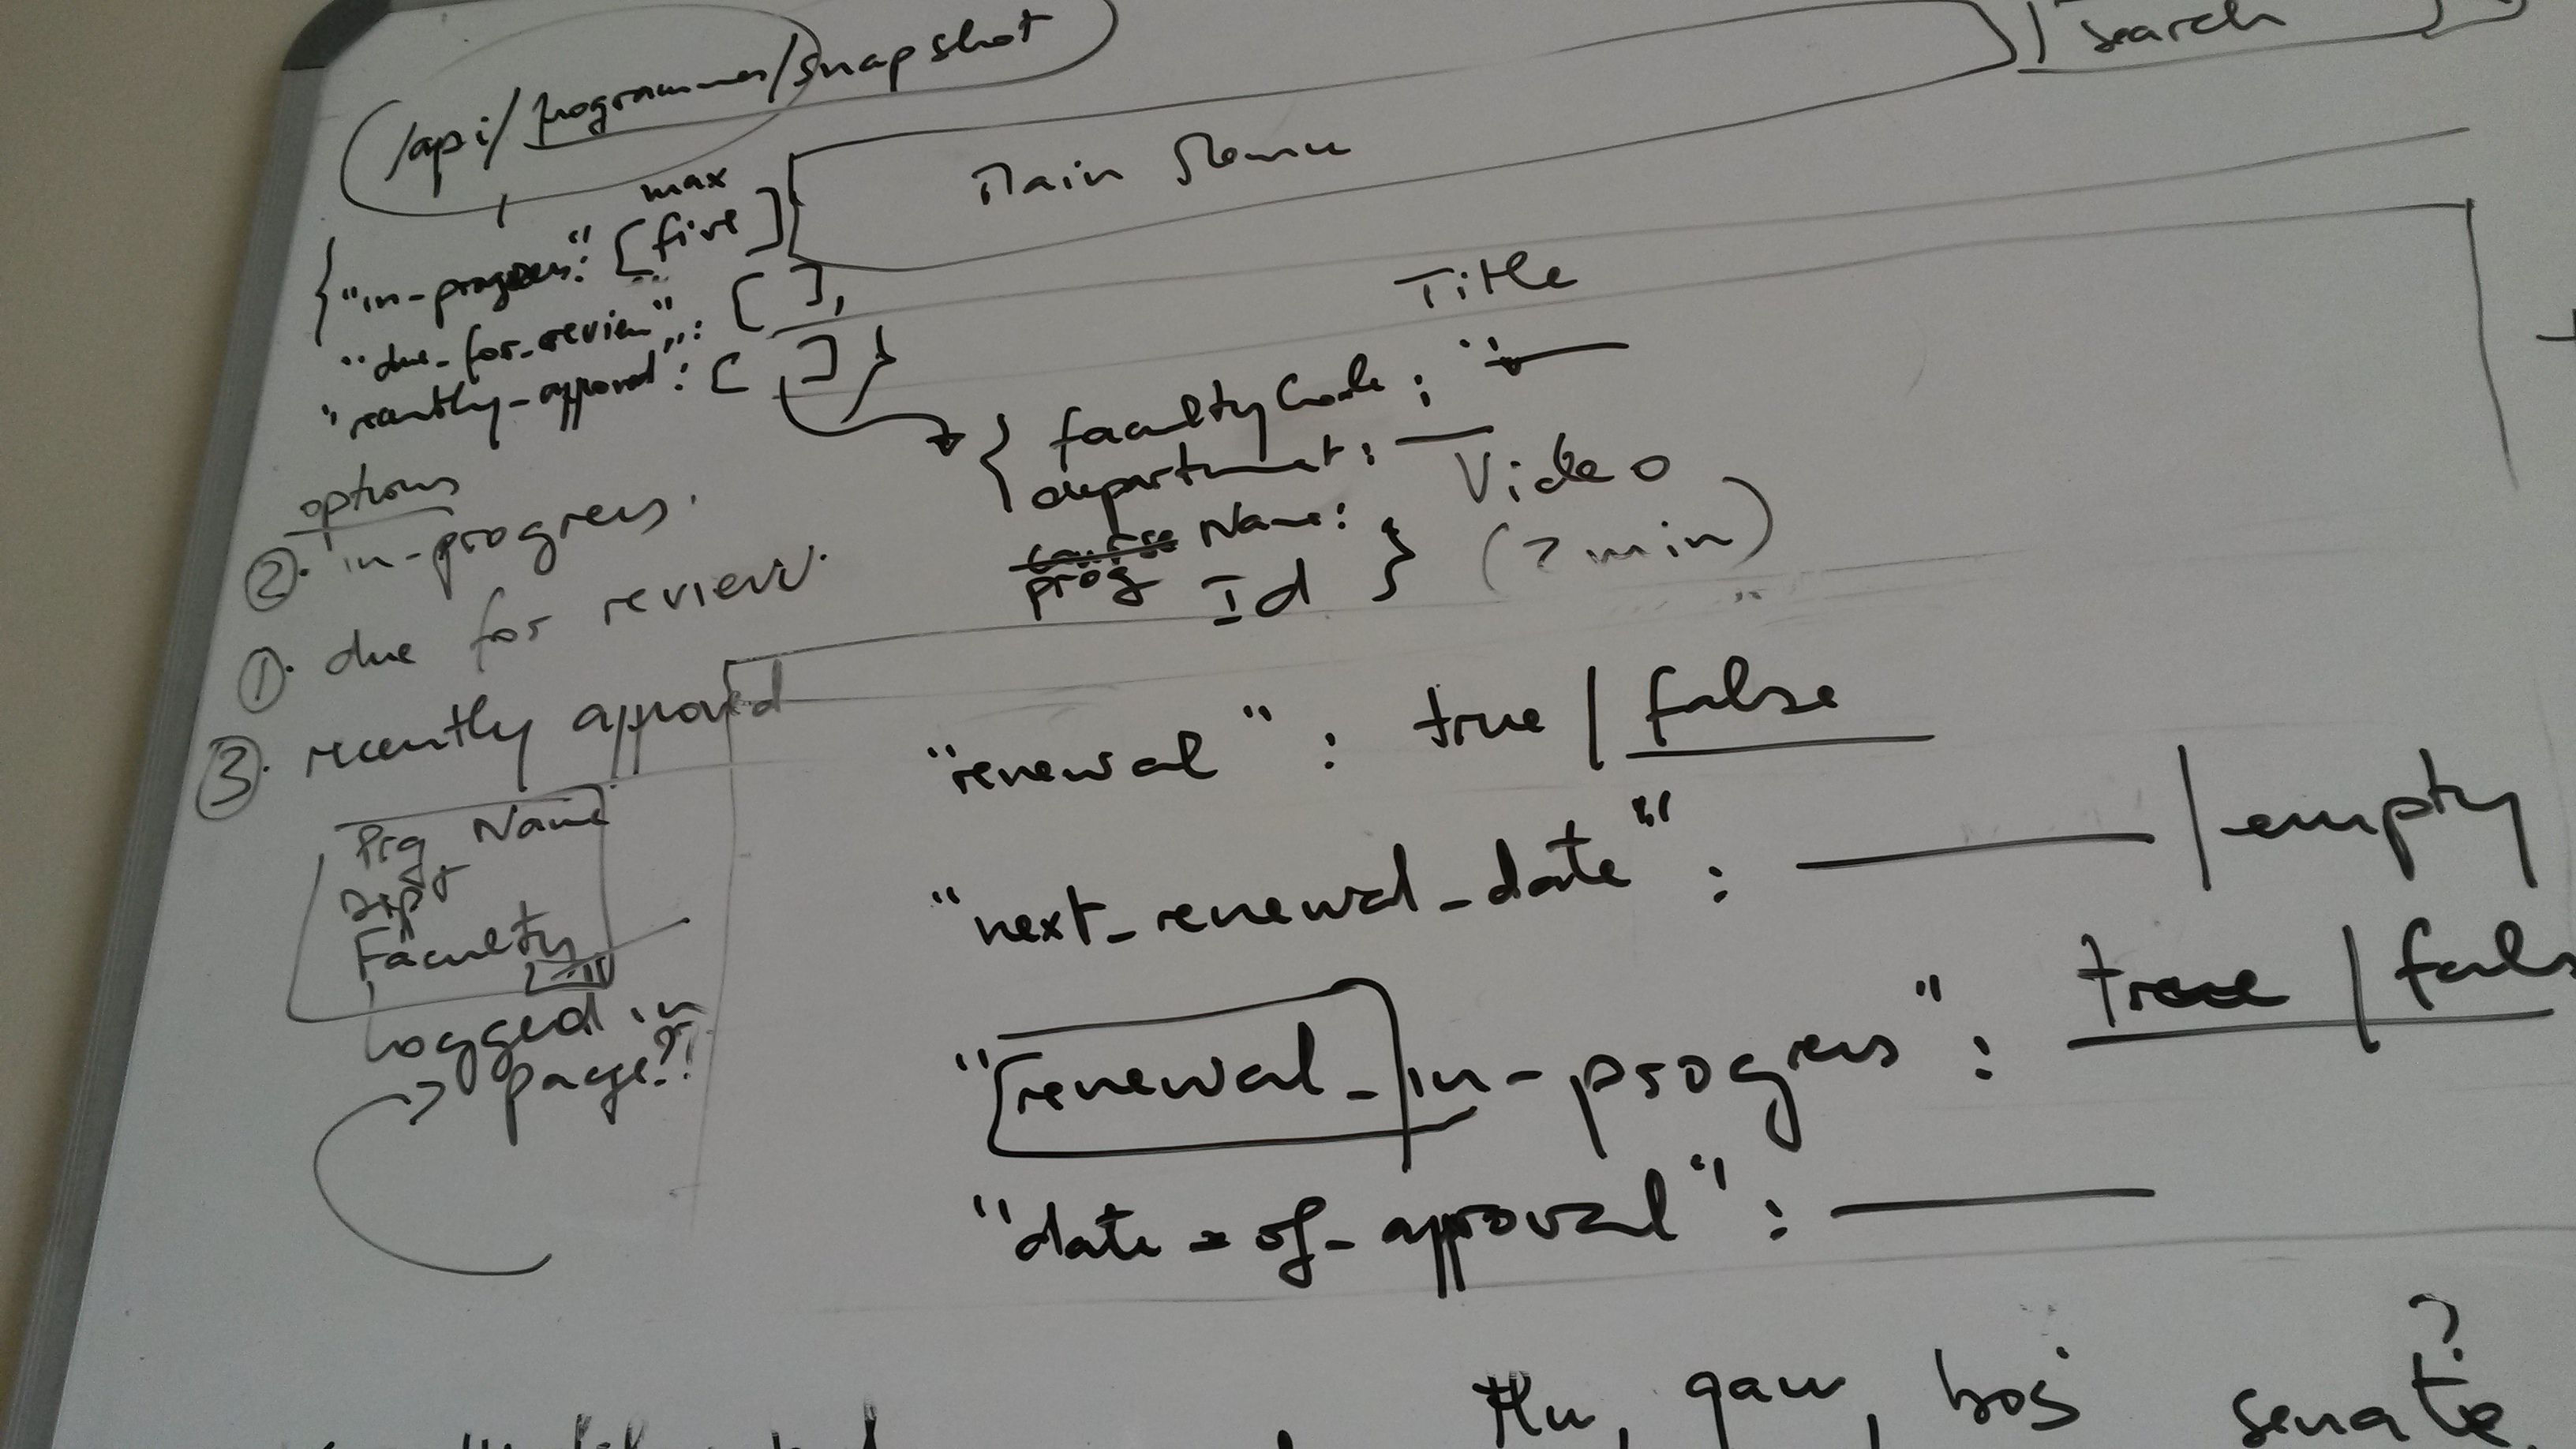 /api/programmes/snapshot
search
max
{"in-progress": [five]
Main
"due_for_review": [ ],
"recently-approved": [ ]}
Title
{ facultyCode : "
department:
Video
course Name:
prog Id }
(2 min)
options
② in-progress.
① due for review.
③ recently approved
Prg Name
Dept
Faculty
logged in
page?!
"renewal" : true | false
"next_renewal_date" : | empty
"renewal_in-progress" : true | fals
"date_of_approval" :
?
senate